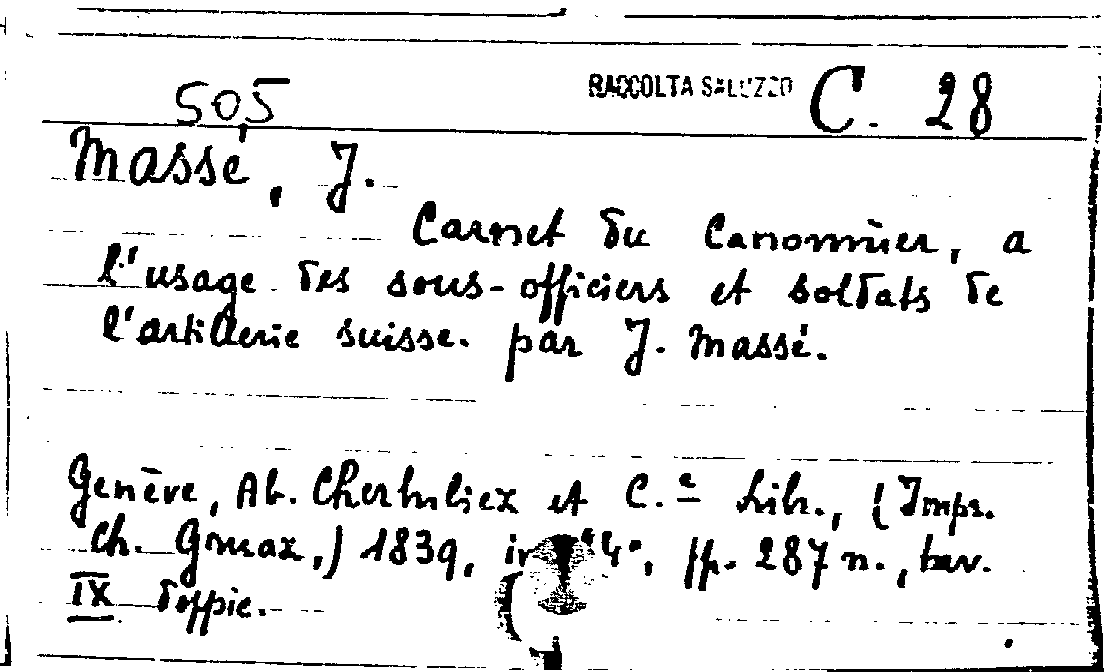 505 RACCOLTA SALUZZO C. 28
Massé, J.
Carnet du Canonnier, a
l'usage des sous-officiers et soldats de
l'artillerie suisse. par J. Massé.
Genève, Ab. Cherbuliez et C.e Lib., (Impr.
Ch. Gruaz,) 1839, 4°, pp. 287 n., tav.
IX doppie.